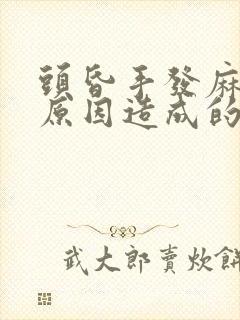 頭昏手發麻
原因造成的
武大郎賣炊餅